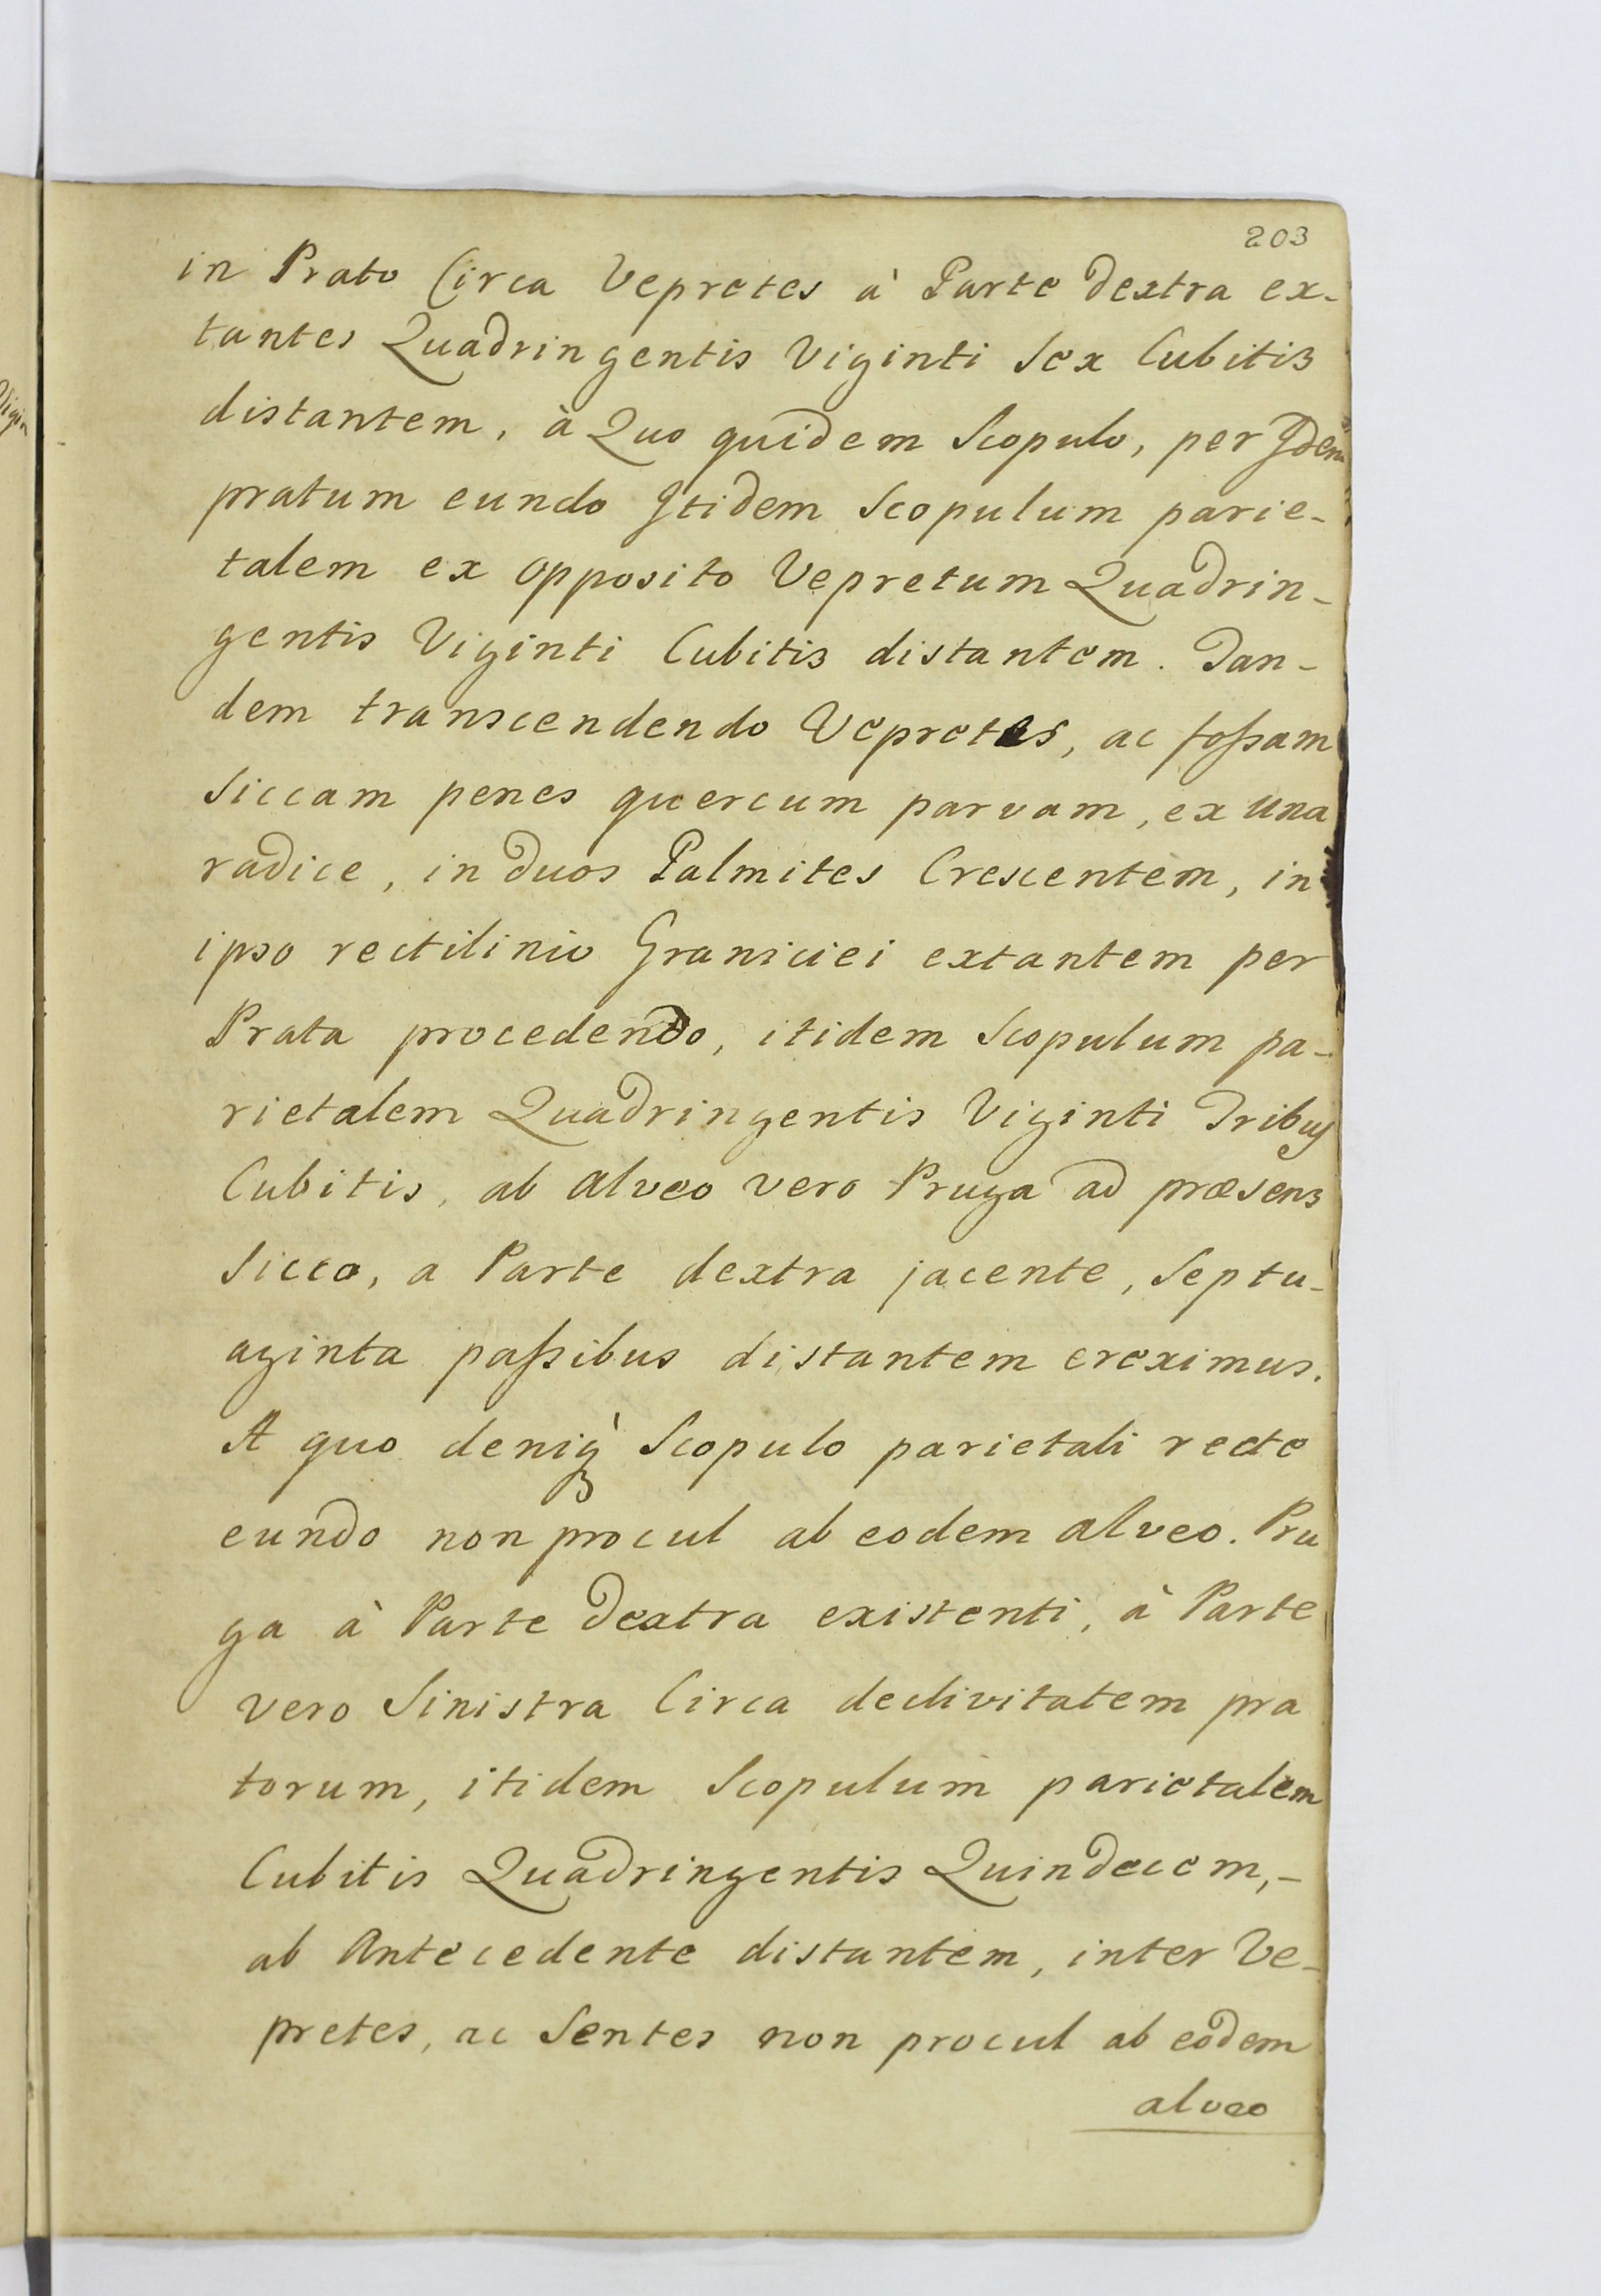 203
in Prato Circa Vepretes à Parte dextra ex-
tantes Quadringentis Viginti Sex Cubitis
distantem, à Quo quidem Scopulo, per Idem
pratum eundo Itidem Scopulum parie-
talem ex opposito Vepretum Quadrin-
gentis Viginti Cubitis distantem. Tan-
dem transcendendo Vepretes, ac foſsam
Siccam penes quercum parvam, ex una
radice, in duos Palmites Crescentem, in
ipso rectilinio Graniciei extantem per
Prata procedendo, itidem Scopulum pa-
rietalem Quadringentis Viginti Tribus
Cubitis, ab alveo vero Pruga ad præsens
Sicco, a Parte dextra jacente, Septu-
aginta paſsibus distantem ereximus.
A quo deniq́ Scopulo parietali recte
eundo non procul ab eodem alveo. Pru
ga à Parte dextra existenti, à Parte
vero Sinistra Circa declivitatem pra
torum, itidem Scopulum parietalem
Cubitis Quadringentis Quindecem,-
ab Antecedente distantem, inter Ve-
pretes, ac Sentes non procul ab eodem
alveo